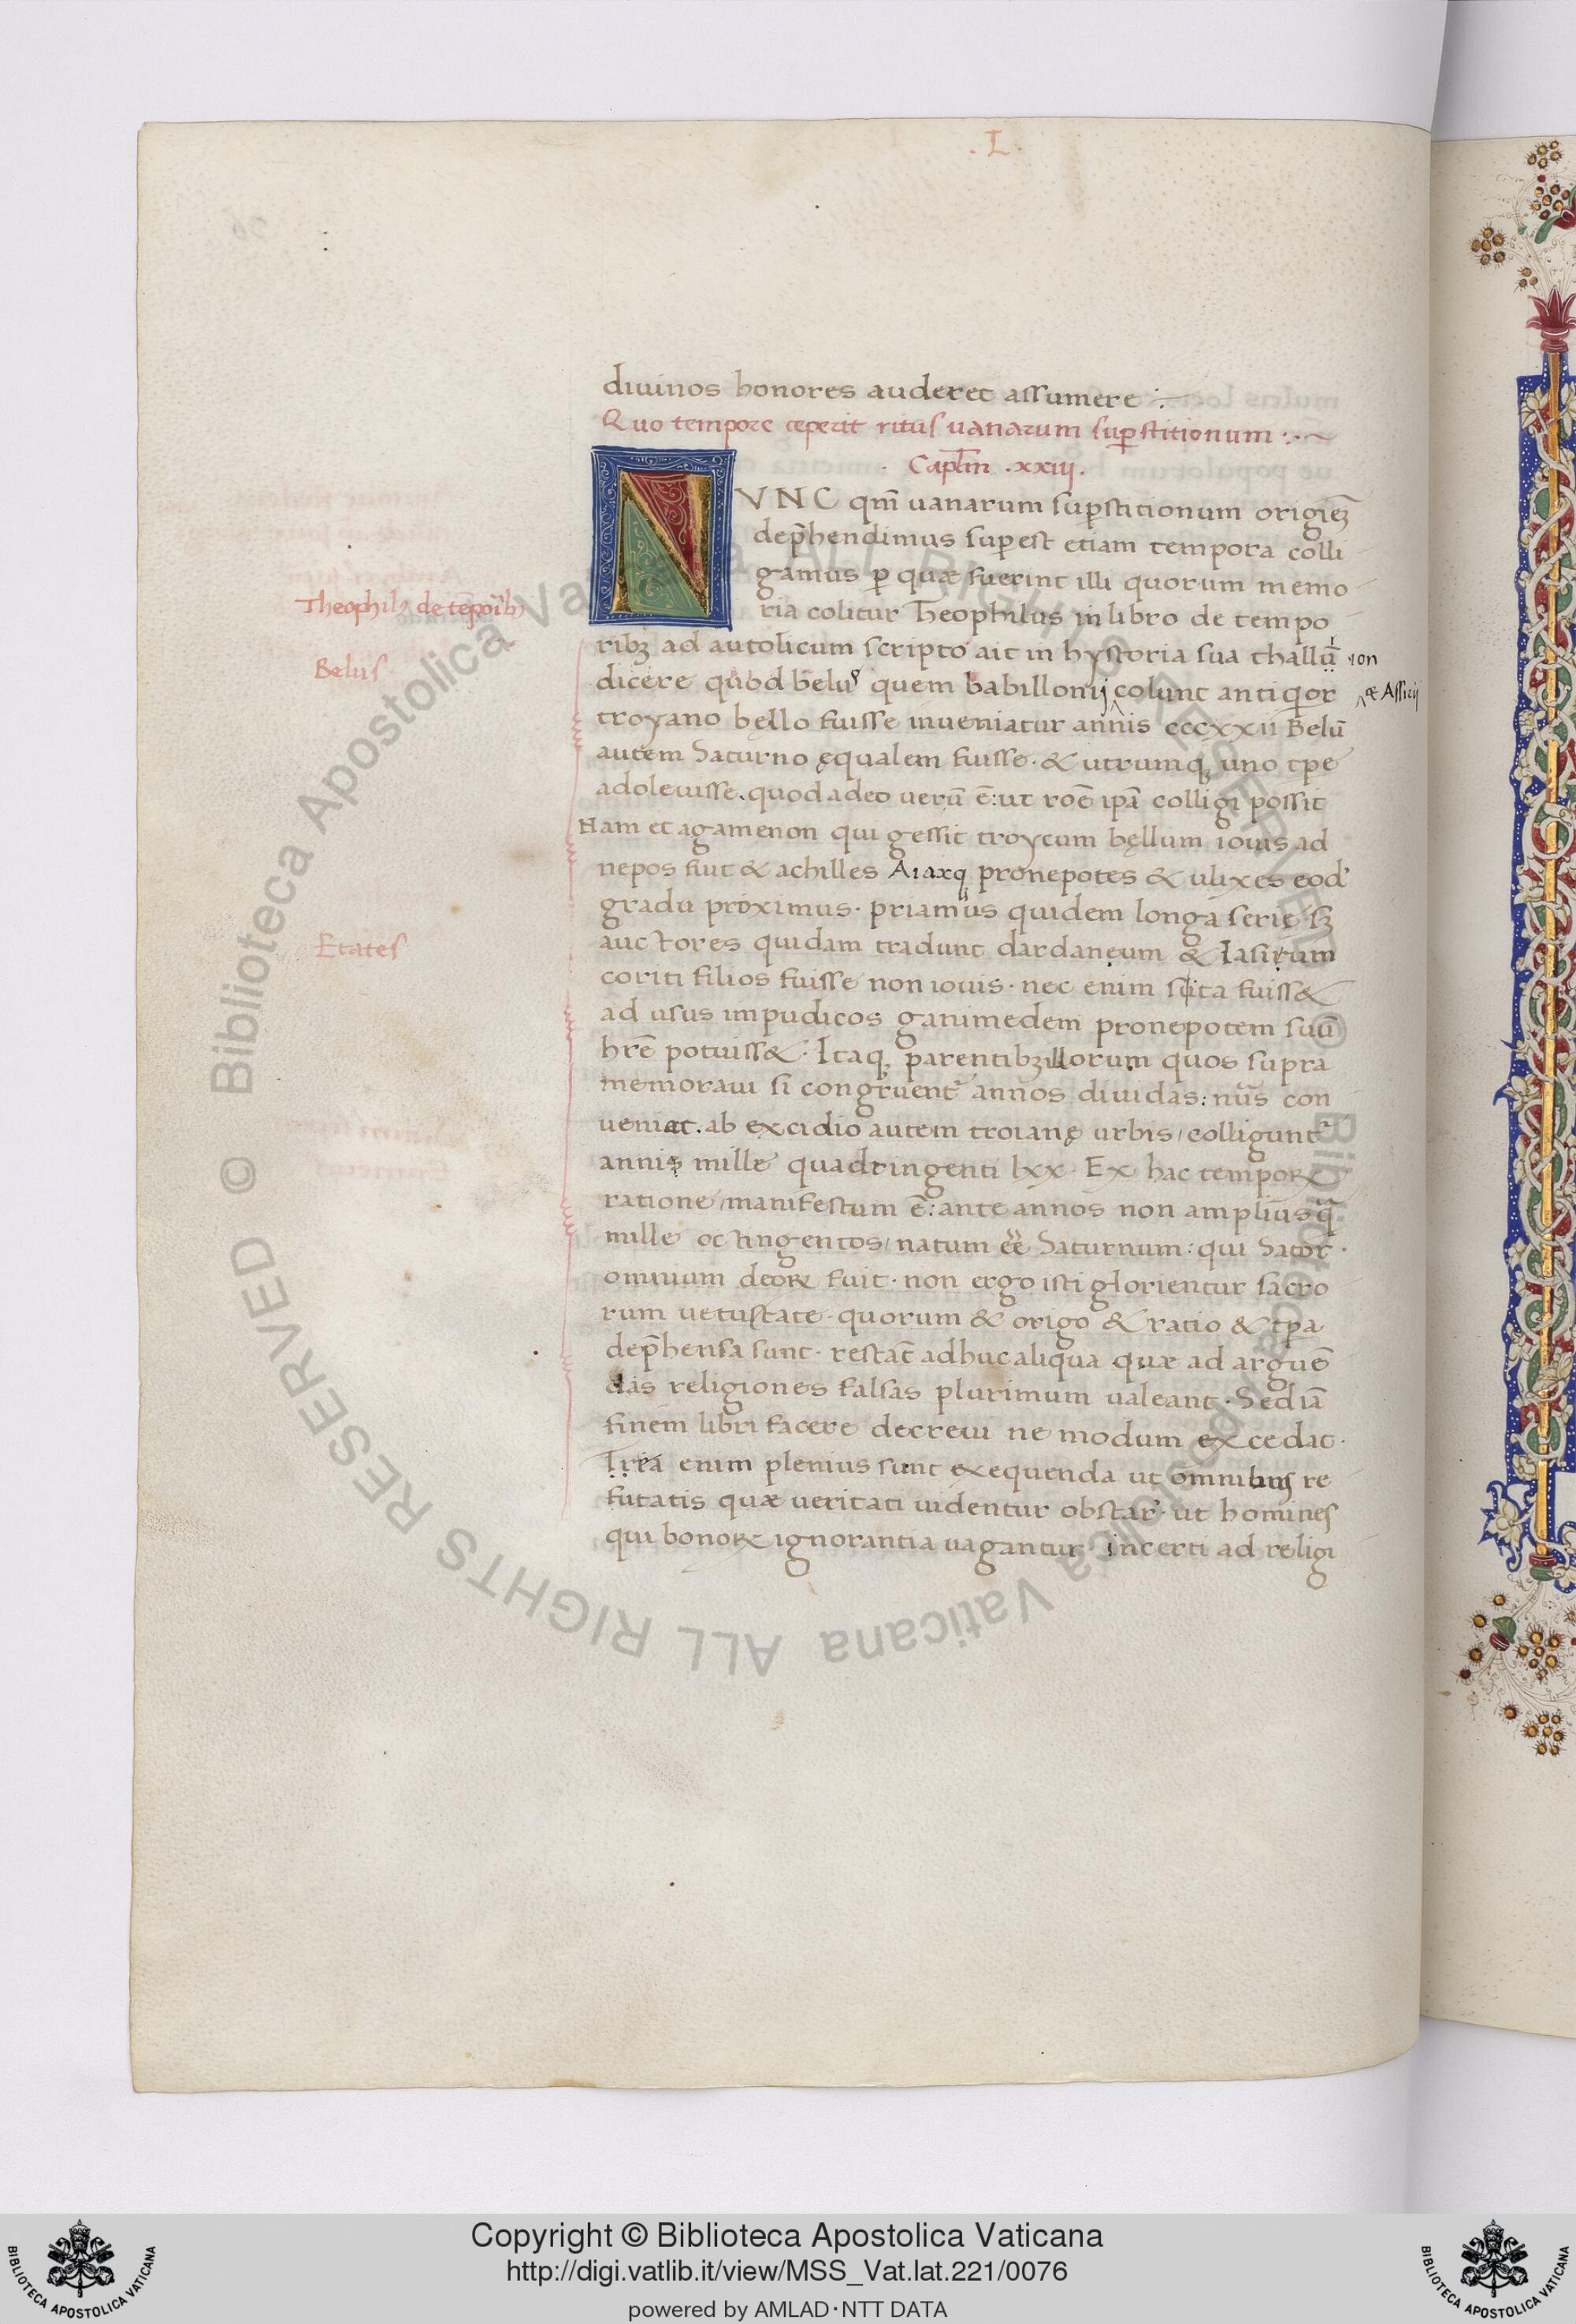 . L .
diuinos honores auderet assumere :~
Quo tempore ceperit ritus uanarum sup̱stitionum :·~
Capl̄m .xxiij.
VNC qm̄ uanarum sup̱stitionum origiēȝ
dep̄hendimus sup̱est etiam tempora colli
gamus p̱ quæ fuerint illi quorum memo
ria colitur Theophilus in libro de tempo
Theophilꝰ de tēpoib
ribȝ ad autolicum scripto ait in hystoria sua thallū
ion
Belus
dicere quod beluꝰ quem babillonij colunt antiq̱or
& Assirij
troyano bello fuisse inueniatur annis cccxxii Belū
autem Saturno ęqualem fuisse · & utrumq; uno tp̄e
adoleuisse. quod adeo uerū ē: ut roē ip̄a colligi possit
Nam et agamenon qui gessit troycum bęllum iouis ad
nepos fuit & achilles Aiaxq pronepotes & ulixes eod'
gradu proximus · priamus quidem longa serie sȝ
Etates
auctores quidam tradunt dardaneum & Iasirum
coriti filios fuisse non iouis · nec enim sita fuiss&
ad usus impudicos ganimedem pronepotem suū
hr̄e potuiss& · Itaq; parentibȝ illorum quos supra
memoraui si congruent̄ annos diuidas: nūs con
ueniet. ab excidio autem troianę urbis / colligunt̄
annis mille quadringenti lxx · Ex hac temporꝝ
ratione / manifestum ē: ante annos non amplius q̄
mille octingentos / natum ēē Saturnum: qui Sator ·
omnium deorꝝ fuit · non ergo isti glorientur sacro
rum uetustate · quorum & origo & ratio & tp̄a
dep̄hensa sunt · restāt adhuc aliqua quæ ad arguē
das religiones falsas plurimum ualeant · Sed iā
finem libri facere decreui ne modum excedat ·
enim plenius sunt exequenda ut omnibus re
futatis quæ ueritati uidentur obstar̄ · ut homines
qui bonorꝝ ignorantia uagantur incerti ad religi
© Biblioteca Apostolica Vaticana ALL RIGHTS RESERVED
Copyright © Biblioteca Apostolica Vaticana
http://digi.vatlib.it/view/MSS_Vat.lat.221/0076
powered by AMLAD·NTT DATA
BIBLIOTECA APOSTOLICA VATICANA
BIBLIOTECA APOSTOLICA VATICANA